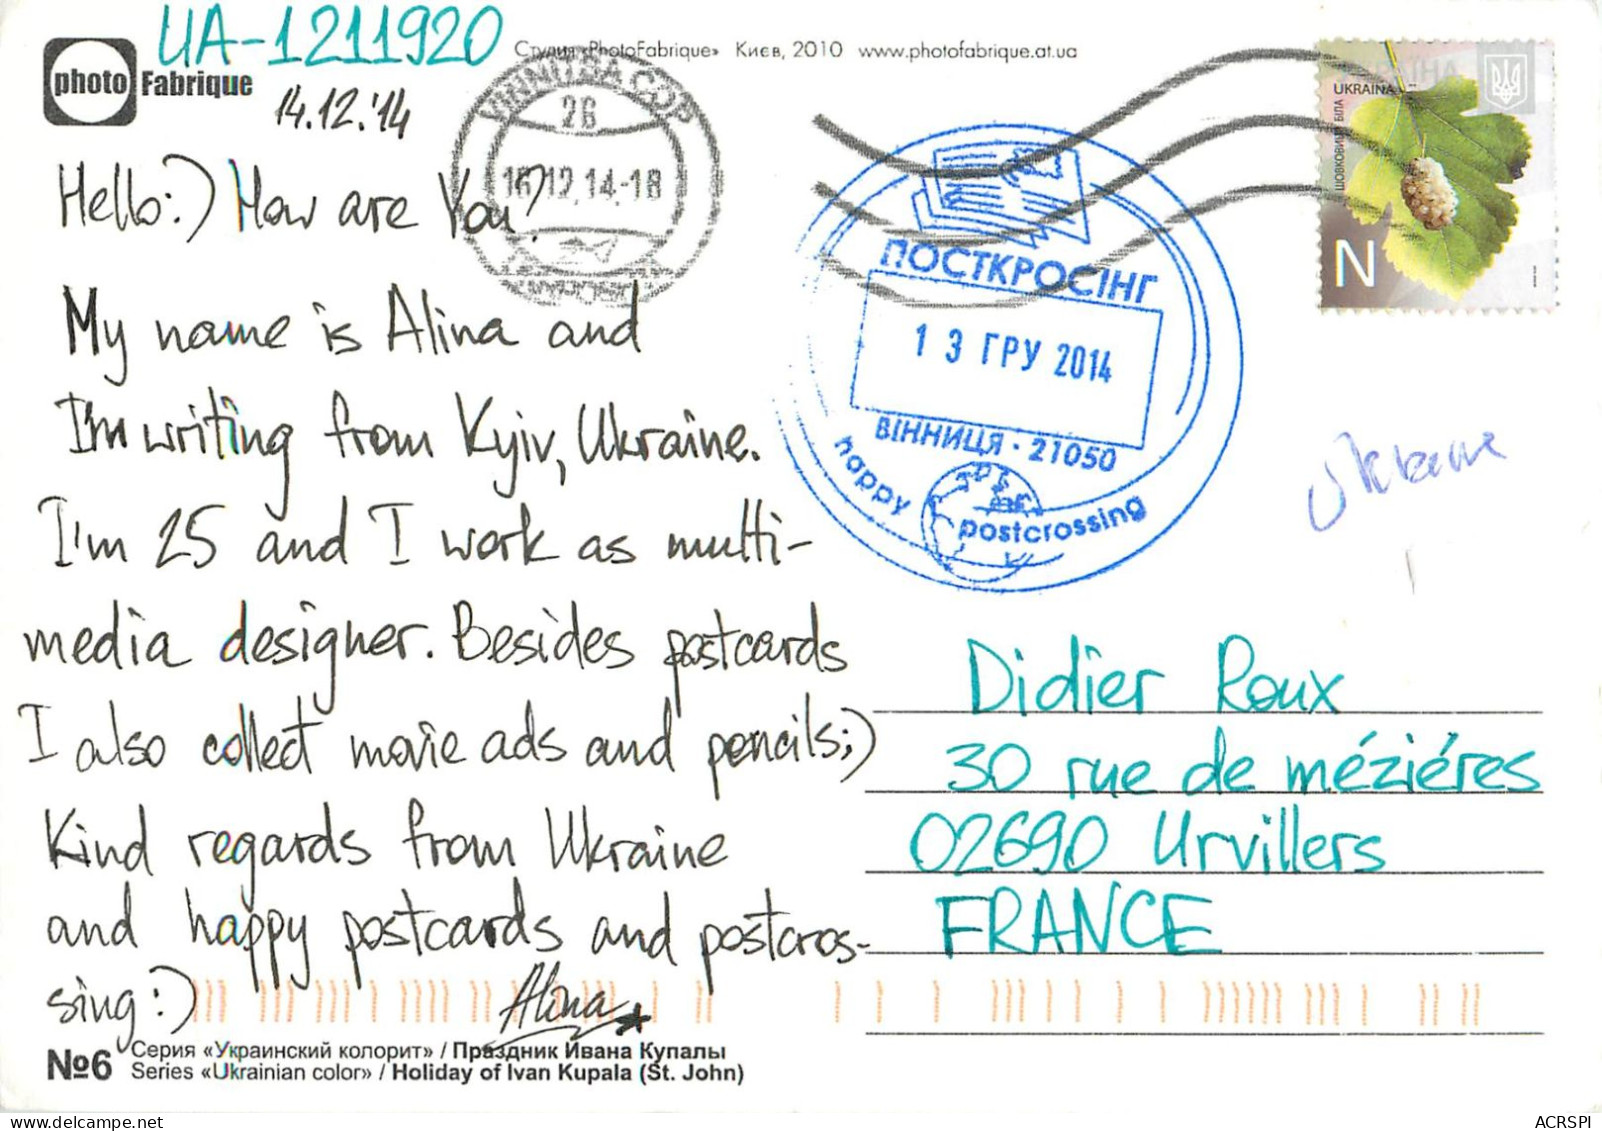 UA-1211920
Студия «PhotoFabrique» Києв, 2010 www.photofabrique.at.ua
photo Fabrique
14.12.'14
VINNYTSIA
26
16.12.14-18
УКРАЇНА
UKRAINA
ШОВКОВИЦЯ БІЛА
N
I
ПОСТКРОСІНГ
13 ГРУ 2014
ВІННИЦЯ · 21050
happy postcrossing
Ukraine
Hello:) How are You?
My name is Alina and
I'm writing from Kyiv, Ukraine.
I'm 25 and I work as multi-
media designer. Besides postcards
I also collect movie ads and pencils;)
Kind regards from Ukraine
and happy postcards and postcros-
sing:)
Alina
Didier Roux
30 rue de méziéres
02690 Urvillers
FRANCE
№6 Серия «Украинский колорит» / Праздник Ивана Купалы
Series «Ukrainian color» / Holiday of Ivan Kupala (St. John)
ACRSPI